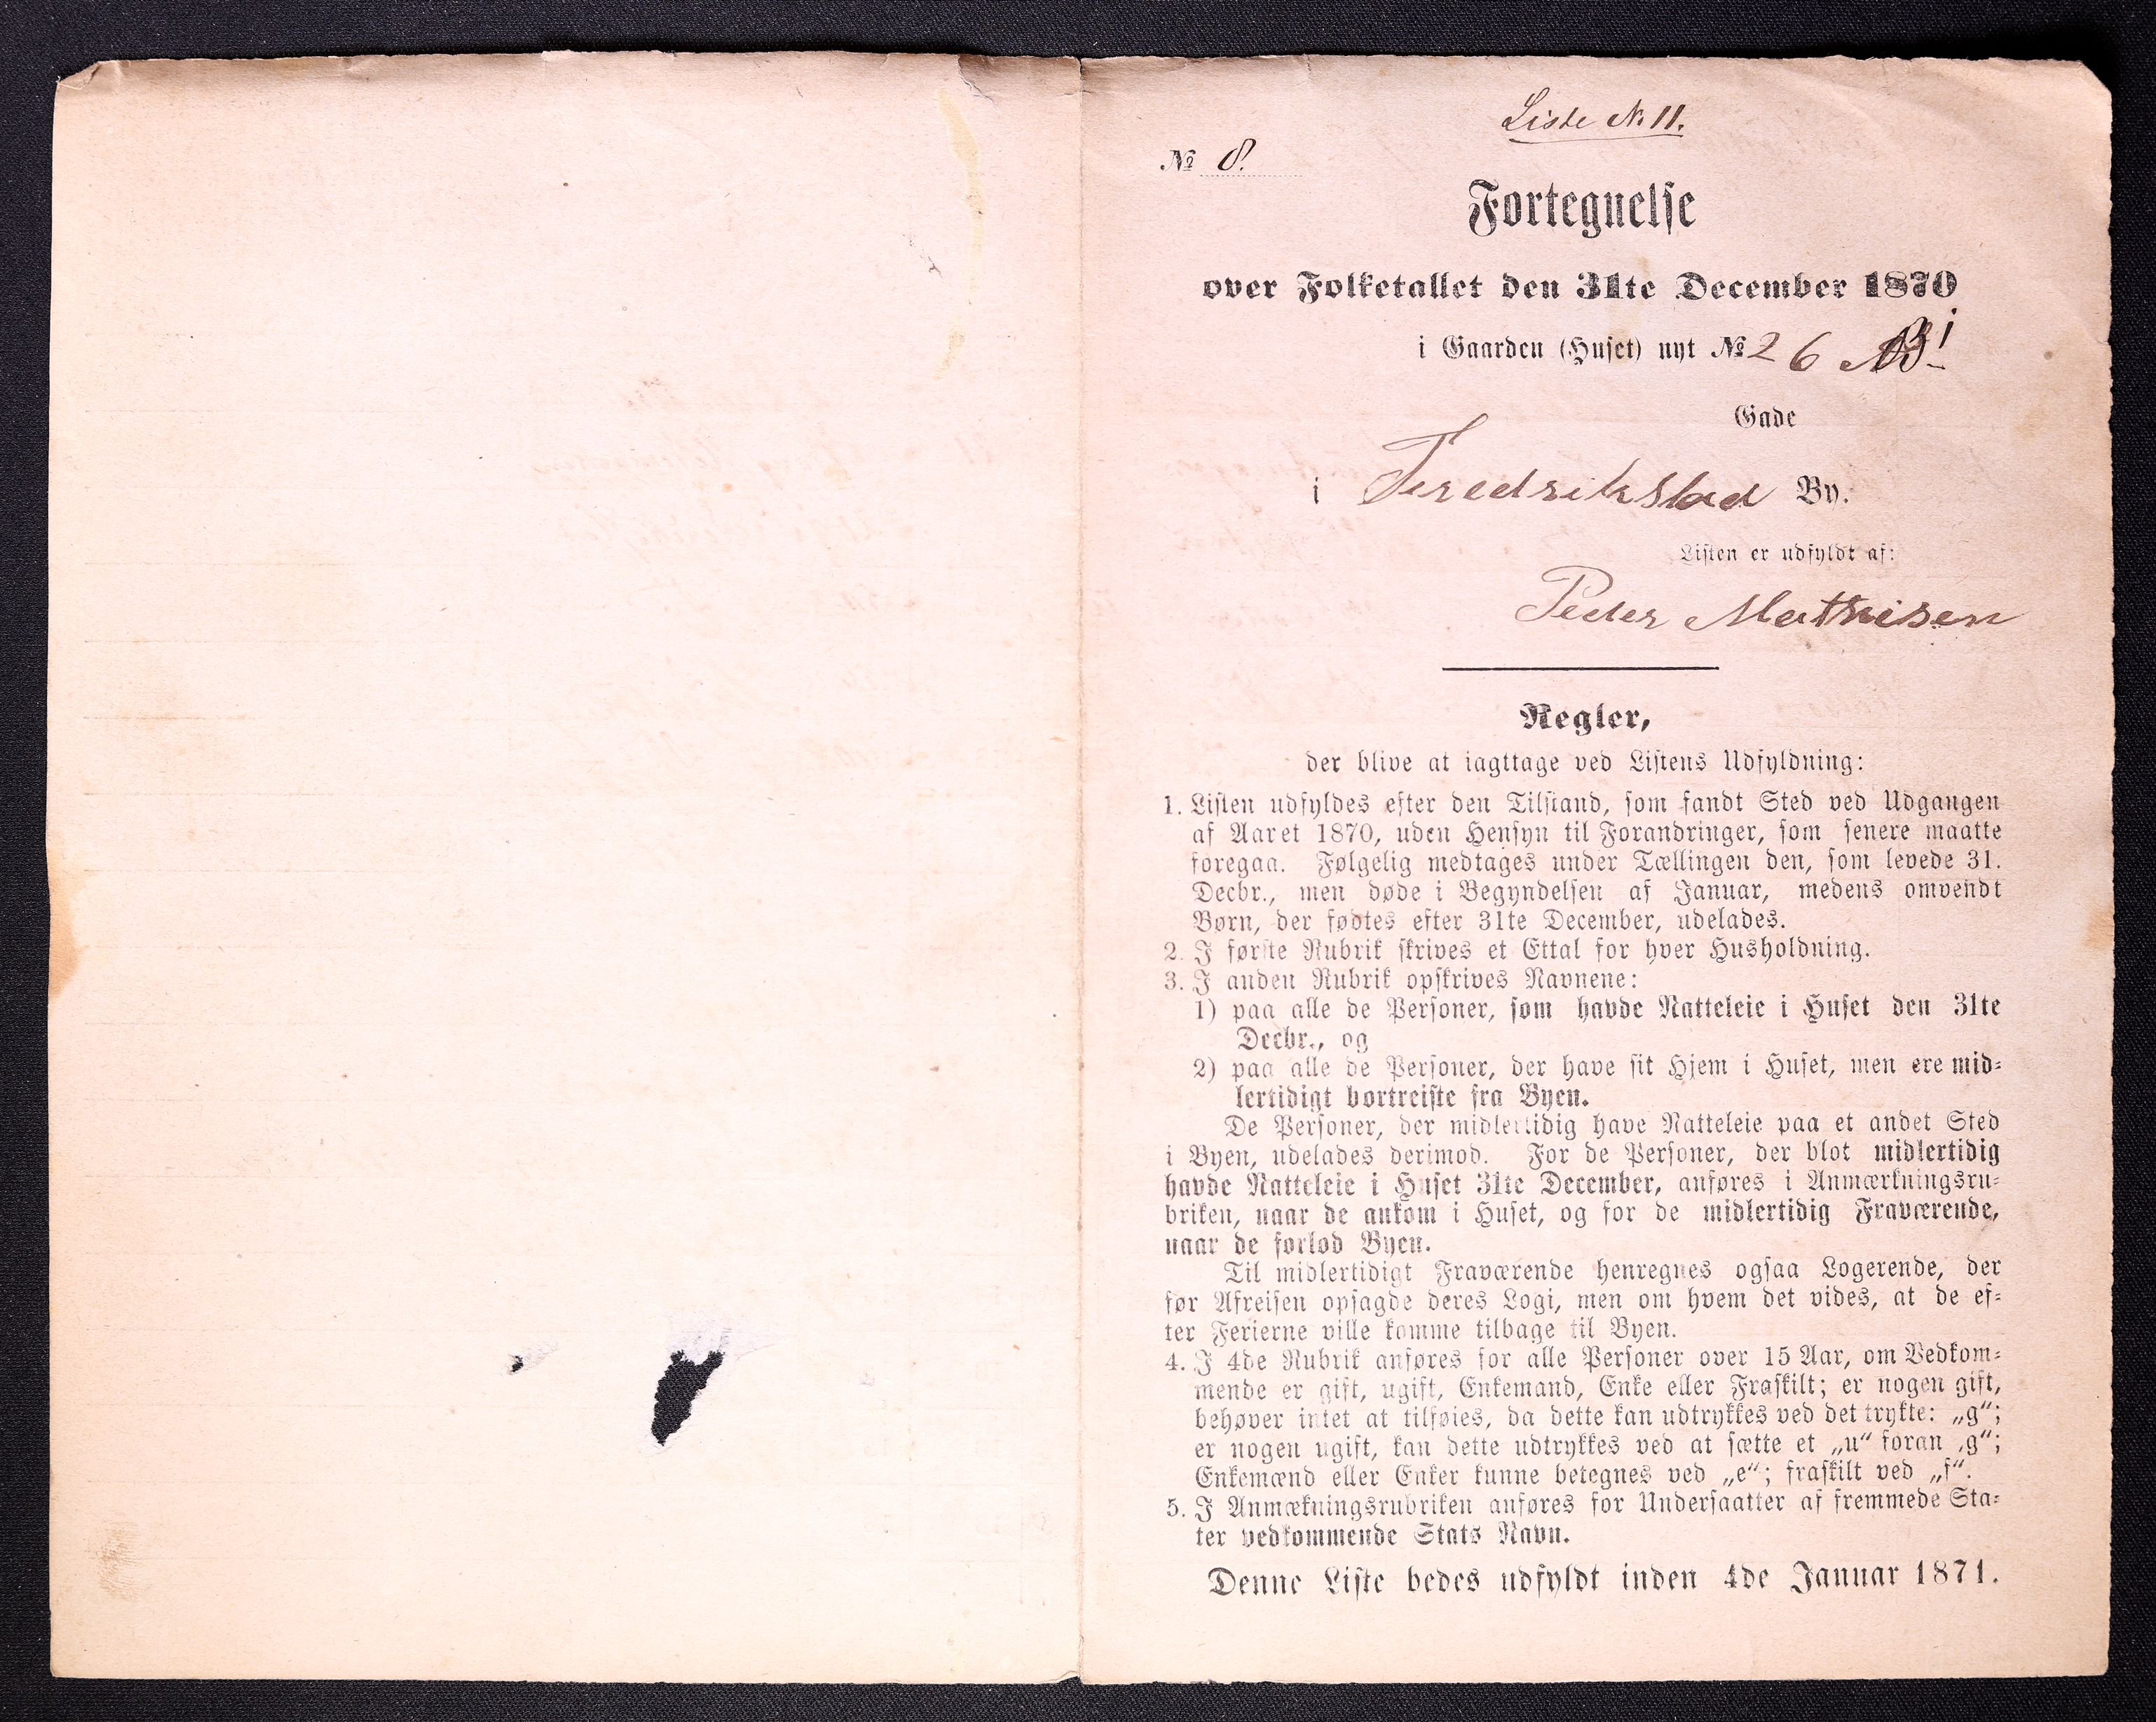 Liste № 11.
№ 8.
Fortegnelse
over Folketallet den 31te December 1870
i Gaarden (Huset) nyt № 26
Gade
i Fredrikstad By.
Listen er udfyldt af:
Peder Mathisen
Regler,
der blive at iagttage ved Listens Udfyldning:
1. Listen udfyldes efter den Tilstand, som fandt Sted ved Udgangen
af Aaret 1870, uden Hensyn til Forandringer, som senere maatte
foregaa. Følgelig medtages under Tællingen den, som levede 31.
Decbr., men døde i Begyndelsen af Januar, medens omvendt
Børn, der fødtes efter 31te December, udelades.
2. I første Rubrik skrives et Ettal for hver Husholdning.
3. I anden Rubrik opskrives Navnene:
1) paa alle de Personer, som havde Natteleie i Huset den 31te
Decbr., og
2) paa alle de Personer, der have sit Hjem i Huset, men ere mid-
lertidigt bortreiste fra Byen.
De Personer, der midlertidig have Natteleie paa et andet Sted
i Byen, udelades derimod. For de Personer, der blot midlertidig
havde Natteleie i Huset 31te December, anføres i Anmærkningsru-
briken, naar de ankom i Huset, og for de midlertidig Fraværende,
naar de forlod Byen.
Til midlertidigt Fraværende henregnes ogsaa Logerende, der
før Afreisen opsagde deres Logi, men om hvem det vides, at de ef-
ter Ferierne ville komme tilbage til Byen.
4. I 4de Rubrik anføres for alle Personer over 15 Aar, om Vedkom-
mende er gift, ugift, Enkemand, Enke eller Fraskilt; er nogen gift,
behøver intet at tilføies, da dette kan udtrykkes ved det trykte: „g“;
er nogen ugift, kan dette udtrykkes ved at sætte et „u“ foran „g“;
Enkemænd eller Enker kunne betegnes ved „e“; fraskilt ved „f“.
5. I Anmækningsrubriken anføres for Undersaatter af fremmede Sta-
ter vedkommende Stats Navn.
Denne Liste bedes udfyldt inden 4de Januar 1871.